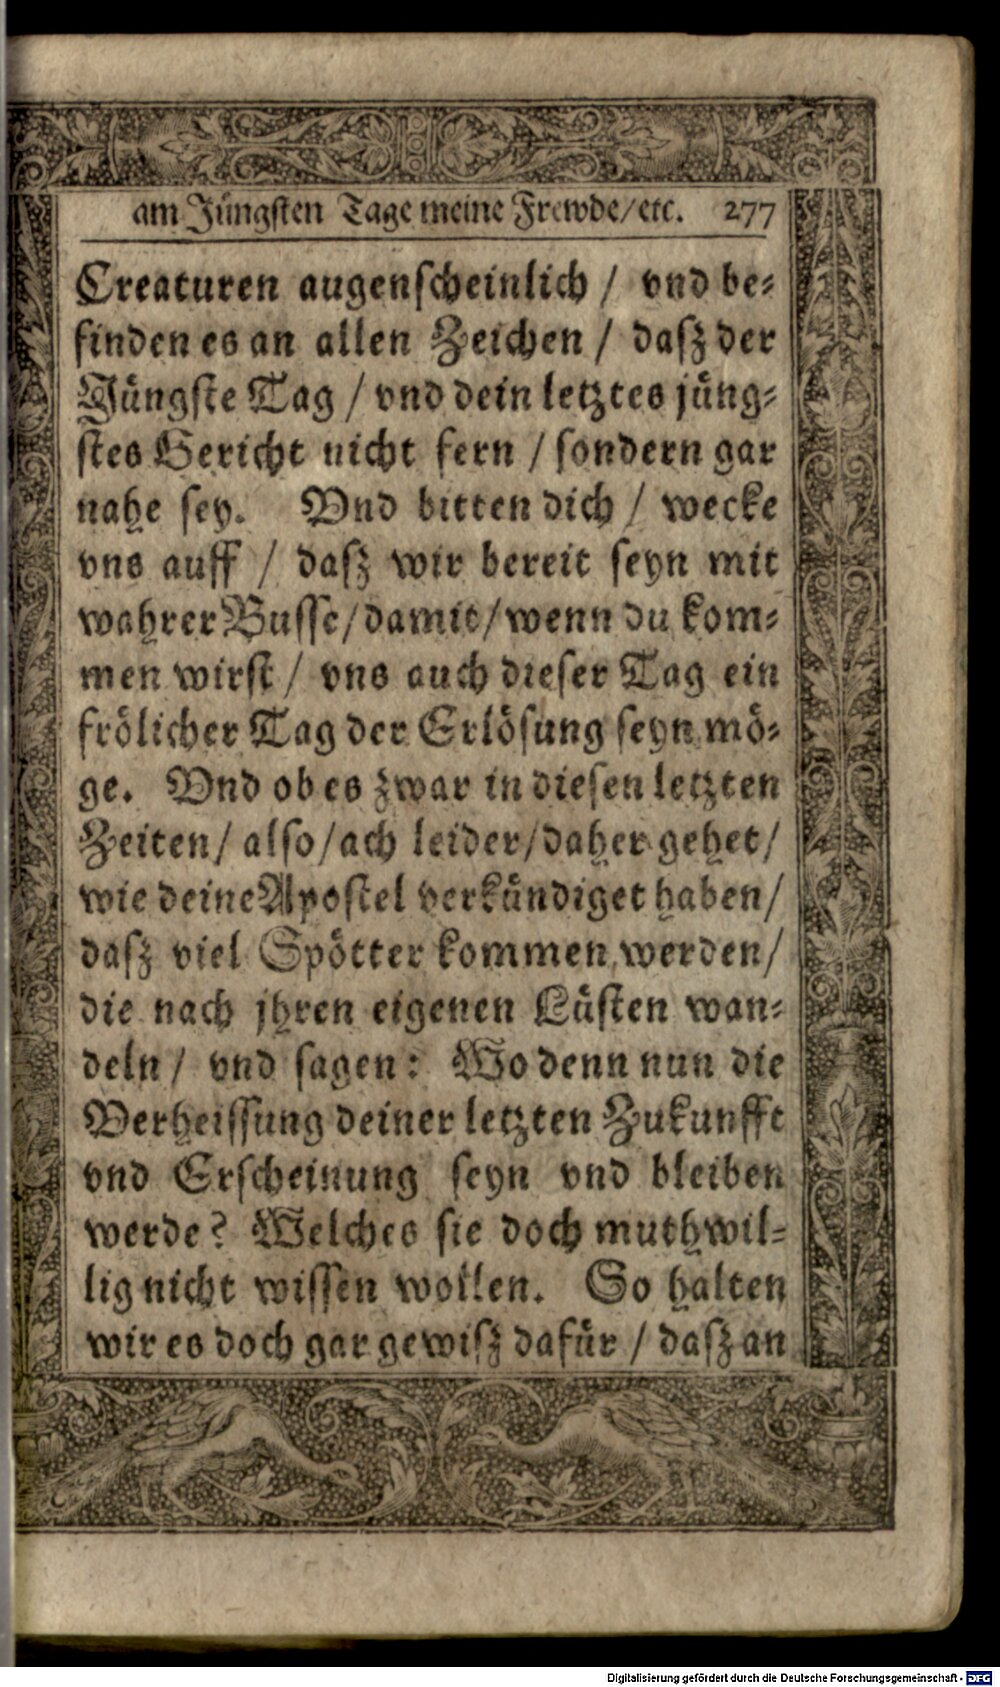 am Jüngsten Tage meine Frewde/etc. 277
Creaturen augenscheinlich / vnd be-
finden es an allen Zeichen / daß der
Jüngste Tag / vnd dein letztes jüng-
stes Gericht nicht fern / sondern gar
nahe sey. Vnd bitten dich / wecke
vns auff / daß wir bereit seyn mit
wahrer Busse/damit/wenn du kom-
men wirst / vns auch dieser Tag ein
frölicher Tag der Erlösung seyn mö-
ge. Vnd ob es zwar in diesen letzten
Zeiten/ also/ach leider/daher gehet/
wie deine Apostel verkündiget haben/
daß viel Spötter kommen werden/
die nach jhren eigenen Lüsten wan-
deln / vnd sagen: Wo denn nun die
Verheissung deiner letzten Zukunfft
vnd Erscheinung seyn vnd bleiben
werde? Welches sie doch muthwil-
lig nicht wissen wollen. So halten
wir es doch gar gewiß dafür / daß an
Digitalisierung gefördert durch die Deutsche Forschungsgemeinschaft - DFG